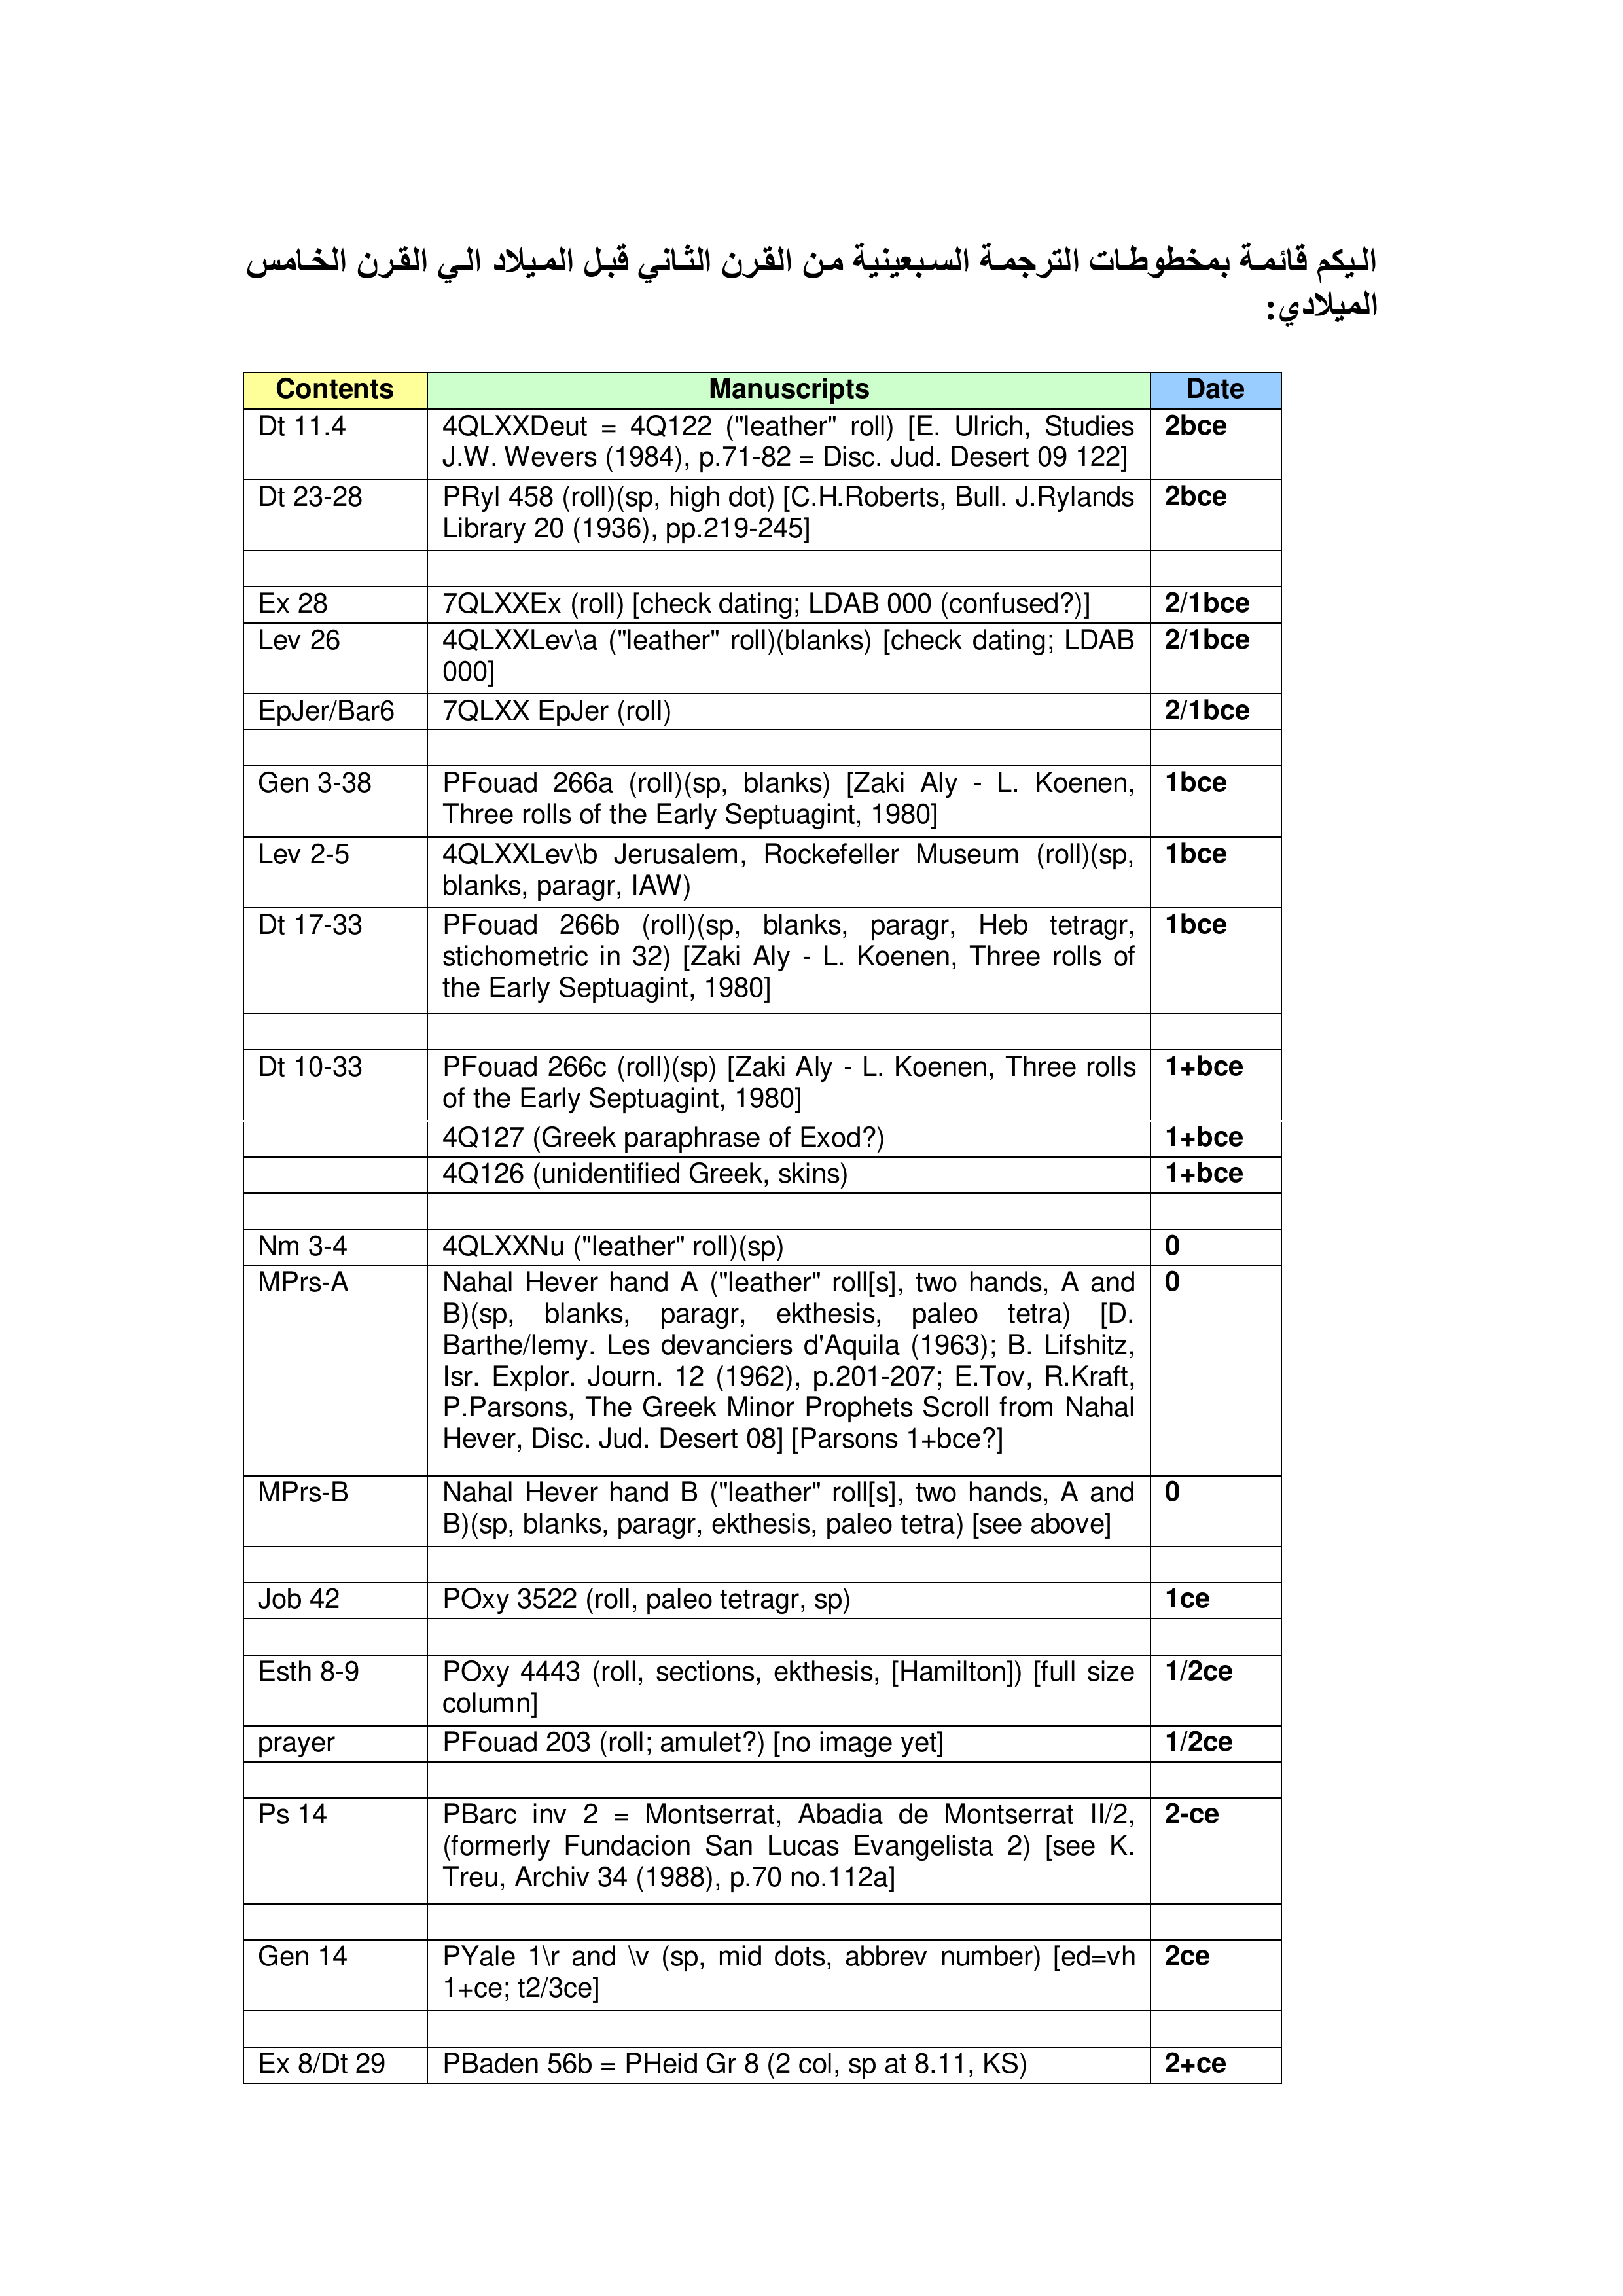 اليكم قائمة بمخطوطات الترجمة السبعينية من القرن الثاني قبل الميلاد الي القرن الخامس
الميلادي:
Contents Manuscripts Date
Dt 11.4 4QLXXDeut = 4Q122 ("leather" roll) [E. Ulrich, Studies 2bce
J.W. Wevers (1984), p.71-82 = Disc. Jud. Desert 09 122]
Dt 23-28 PRyl 458 (roll)(sp, high dot) [C.H.Roberts, Bull. J.Rylands 2bce
Library 20 (1936), pp.219-245]
Ex 28 7QLXXEx (roll) [check dating; LDAB 000 (confused?)] 2/1bce
Lev 26 4QLXXLev\a ("leather" roll)(blanks) [check dating; LDAB 2/1bce
000]
EpJer/Bar6 7QLXX EpJer (roll) 2/1bce
Gen 3-38 PFouad 266a (roll)(sp, blanks) [Zaki Aly - L. Koenen, 1bce
Three rolls of the Early Septuagint, 1980]
Lev 2-5 4QLXXLev\b Jerusalem, Rockefeller Museum (roll)(sp, 1bce
blanks, paragr, IAW)
Dt 17-33 PFouad 266b (roll)(sp, blanks, paragr, Heb tetragr, 1bce
stichometric in 32) [Zaki Aly - L. Koenen, Three rolls of
the Early Septuagint, 1980]
Dt 10-33 PFouad 266c (roll)(sp) [Zaki Aly - L. Koenen, Three rolls 1+bce
of the Early Septuagint, 1980]
4Q127 (Greek paraphrase of Exod?) 1+bce
4Q126 (unidentified Greek, skins) 1+bce
Nm 3-4 4QLXXNu ("leather" roll)(sp) 0
MPrs-A Nahal Hever hand A ("leather" roll[s], two hands, A and 0
B)(sp, blanks, paragr, ekthesis, paleo tetra) [D.
Barthe/lemy. Les devanciers d'Aquila (1963); B. Lifshitz,
Isr. Explor. Journ. 12 (1962), p.201-207; E.Tov, R.Kraft,
P.Parsons, The Greek Minor Prophets Scroll from Nahal
Hever, Disc. Jud. Desert 08] [Parsons 1+bce?]
MPrs-B Nahal Hever hand B ("leather" roll[s], two hands, A and 0
B)(sp, blanks, paragr, ekthesis, paleo tetra) [see above]
Job 42 POxy 3522 (roll, paleo tetragr, sp) 1ce
Esth 8-9 POxy 4443 (roll, sections, ekthesis, [Hamilton]) [full size 1/2ce
column]
prayer PFouad 203 (roll; amulet?) [no image yet] 1/2ce
Ps 14 PBarc inv 2 = Montserrat, Abadia de Montserrat II/2, 2-ce
(formerly Fundacion San Lucas Evangelista 2) [see K.
Treu, Archiv 34 (1988), p.70 no.112a]
Gen 14 PYale 1\r and \v (sp, mid dots, abbrev number) [ed=vh 2ce
1+ce; t2/3ce]
Ex 8/Dt 29 PBaden 56b = PHeid Gr 8 (2 col, sp at 8.11, KS) 2+ce